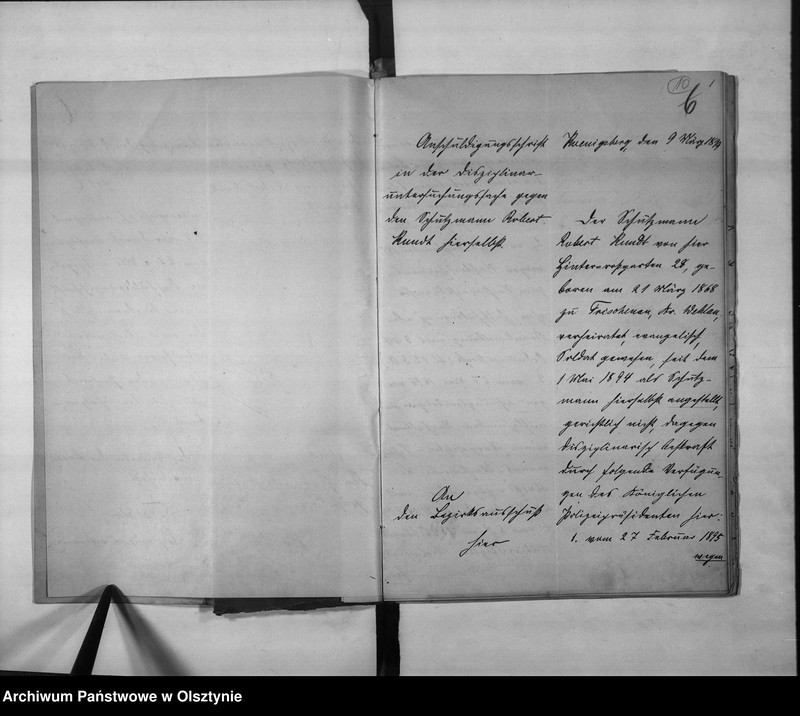 10
6
1
Anschuldigungsschrift
in der Disziplinar-
untersuchungssache gegen
den Schutzmann Robert
Kundt hierselbst.
An
den Bezirksausschuß
hier
Koenigsberg, den 9 März
Der Schutzmann
Robert Kundt von hier
Hinterroßgarten 28, ge-
boren am 21 März 1868
zu Frischenau, Kr. Wehlau,
verheiratet, evangelisch,
Soldat gewesen, seit dem
1 Mai 1894 als Schutz-
mann hierselbst angestellt,
gerichtlich nicht, dagegen
disziplinarisch bestraft
durch folgende Verfügun-
gen des Königlichen
Polizeipräsidenten hier:
1. vom 27 Februar 1895
wegen
Archiwum Państwowe w Olsztynie